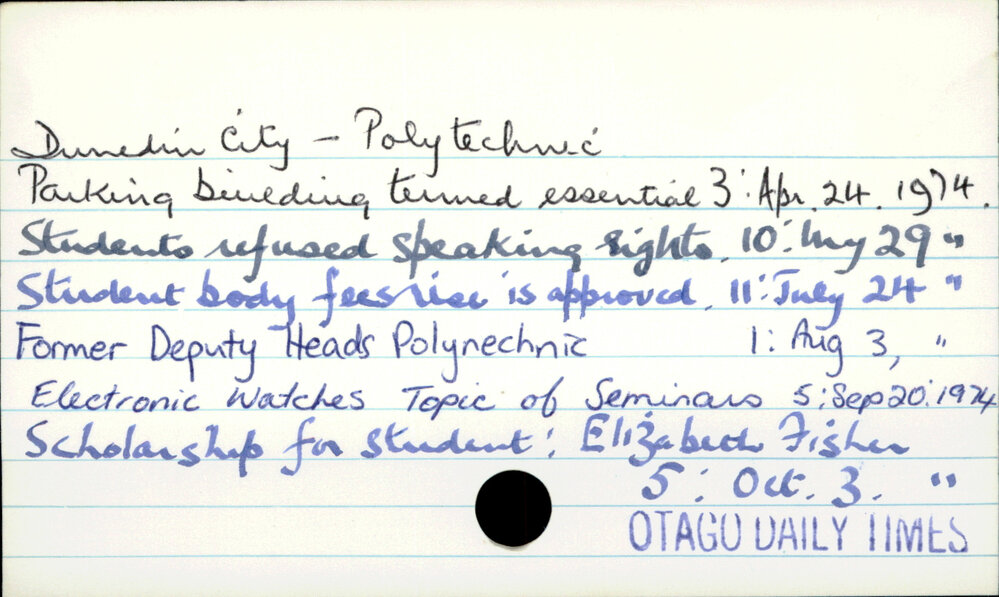 Dunedin City – Polytechnic
Parking building termed essential 3: Apr. 24. 1974.
Students refused speaking rights. 10: May 29 "
Student body fees rise is approved. 11: July 24 "
Former Deputy Heads Polynechnic 1: Aug 3, "
Electronic Watches Topic of Seminars 5: Sep 20: 1974
Scholarship for student: Elizabeth Fisher
5: Oct. 3. "
OTAGO DAILY TIMES